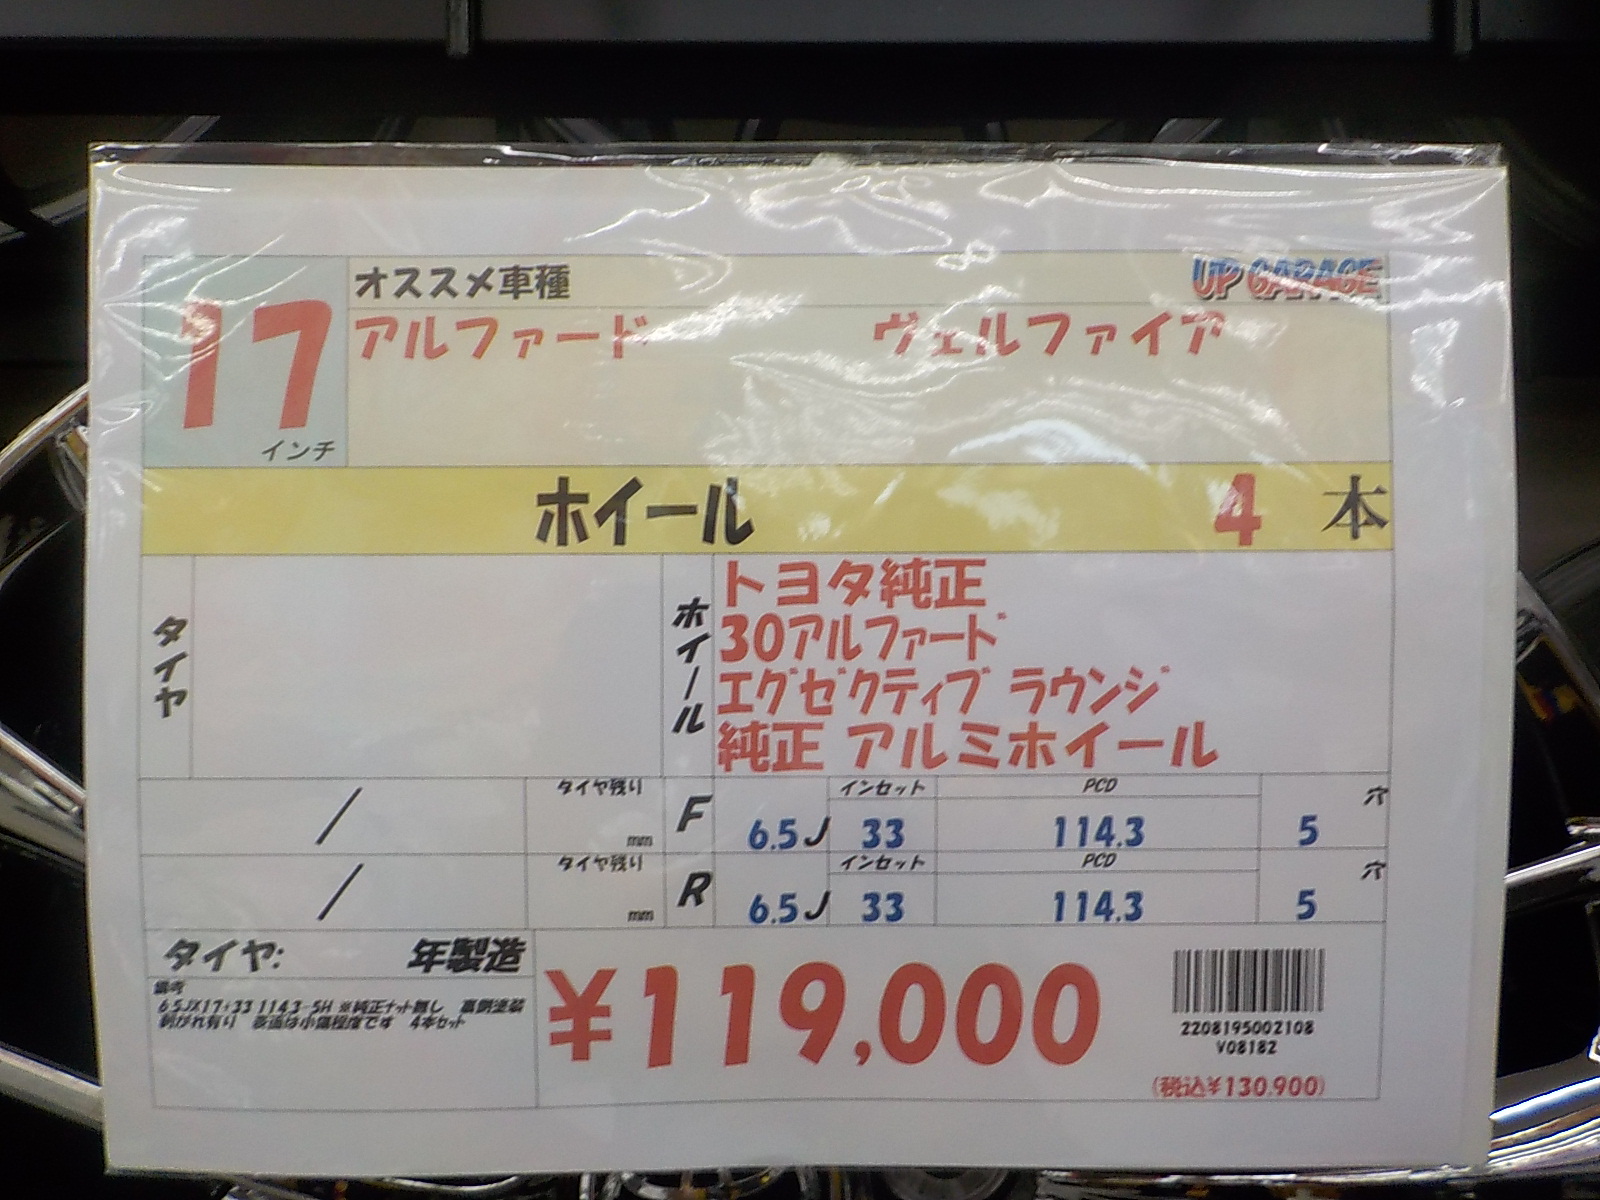 オススメ車種
UP GARAGE
17
インチ
アルファード ヴェルファイア
ホイール 4 本
タイヤ
ホイール
トヨタ純正
30アルファード
エグゼクティブ ラウンジ
純正 アルミホイール
/ タイヤ残り mm F 6.5J インセット 33 PCD 114.3 穴 5
/ タイヤ残り mm R 6.5J インセット 33 PCD 114.3 穴 5
タイヤ: 年製造
備考
6.5JX17+33 114.3-5H ※純正ナット無し 裏側塗装
剥がれ有り 表面は小傷程度です 4本セット
¥119,000
2208195002108
V08182
(税込¥130,900)